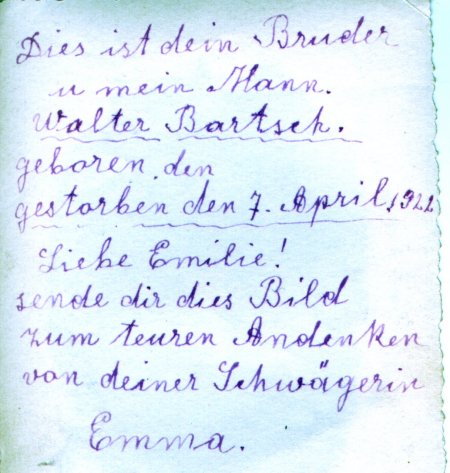 Dies ist dein Bruder
u mein Mann.
Walter Bartsch.
geboren den
gestorben den 7. April, 1922
Liebe Emilie!
sende dir dies Bild
zum teuren Andenken
von deiner Schwägerin
Emma.